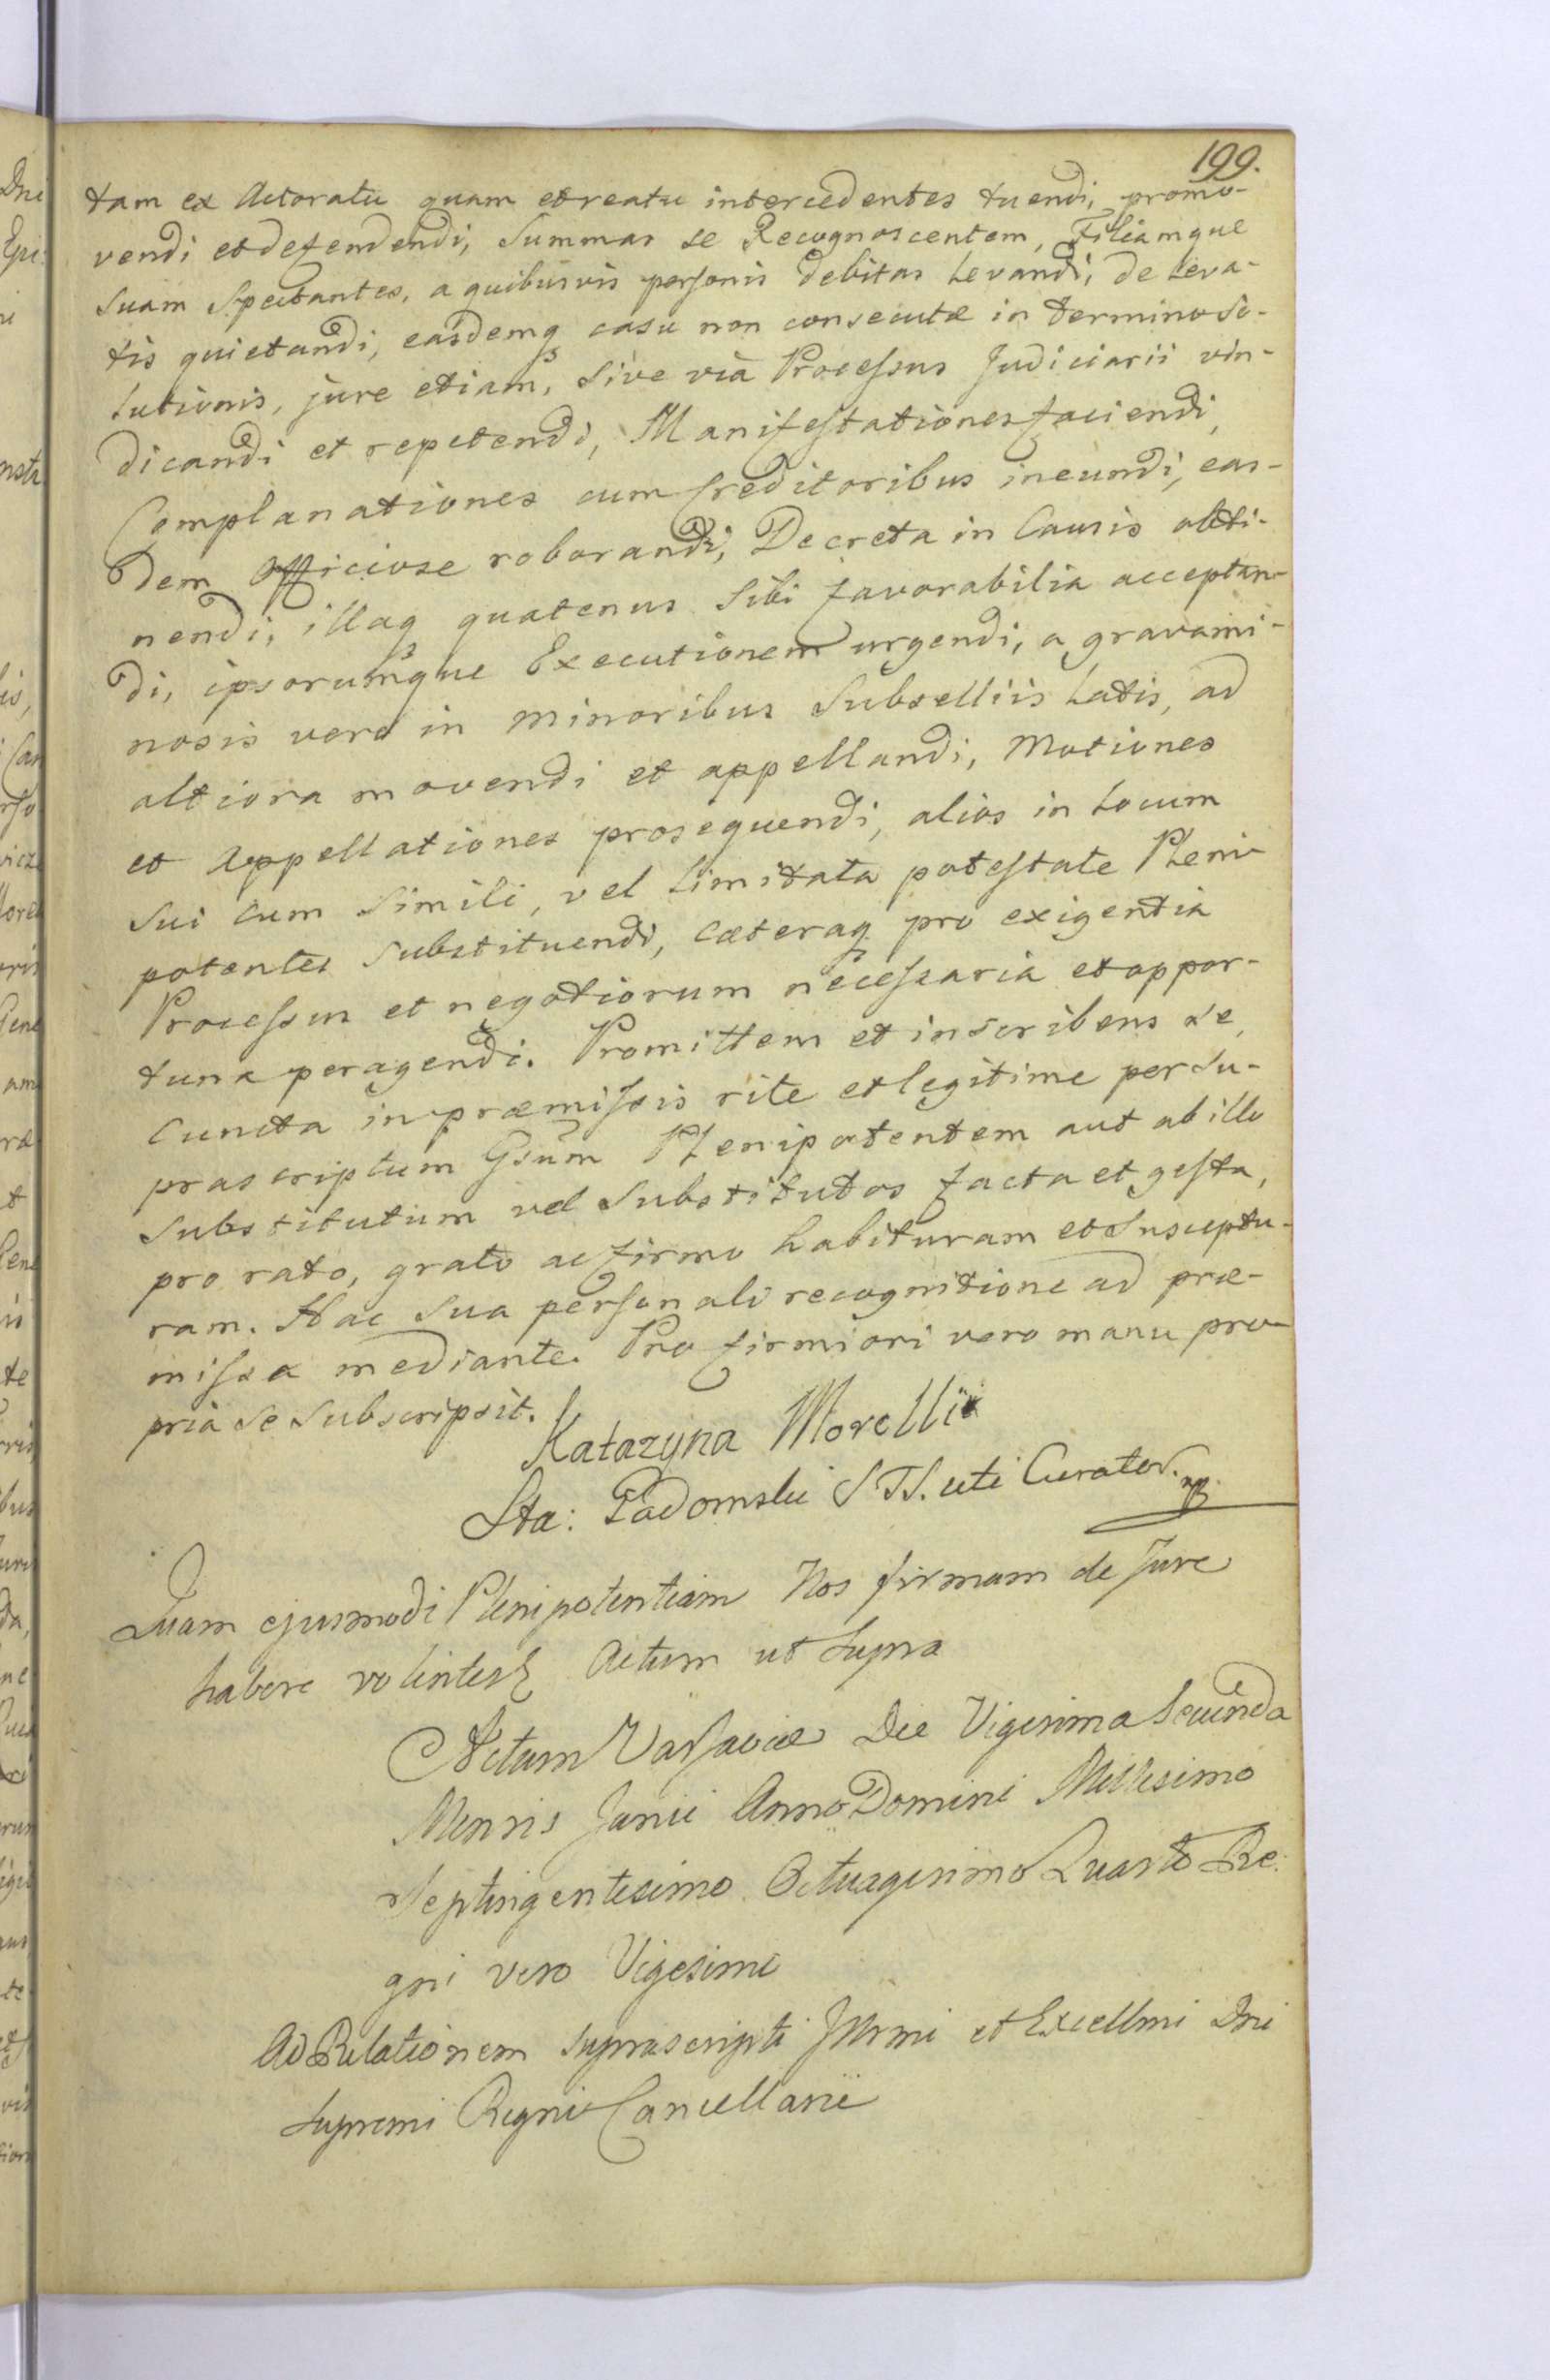 199.
tam ex Actoratu quam et reatu intercedentes tuendi, promo-
vendi et defendendi, Summas se Recognoscentem, Filiamque
suam Spectantes, a quibusvis personis debitas Levandi, de Leva-
tis quietandi, easdemq casu non consecutæ in termino So-
lutionis, jure etiam, sive via Processus Judiciarii vin-
dicandi et repetendi, Manifestationes faciendi,
Complanationes cum Creditoribus ineundi, eas-
dem Officiose roborandi, Decreta in Causis obti-
nendi, illaq quatenus Sibi favorabilia acceptan-
di, ipsorumque Executionem urgendi, a gravami-
nosis vero in minoribus Subselliis Latis, ad
altiora movendi et appellandi, Motiones
et Appellationes prosequendi, alios in Locum
Sui cum Simili, vel Limitata potestate Pleni-
potentes Substituendi, cæteraq pro exigentia
Processus et negotiorum necessaria et oppor-
tuna peragendi. Promittens et inscribens se,
cuncta in præmissis rite et legitime per Su-
prascriptum Gsum Plenipotentem aut ab illo
Substitutum vel Substitutos facta et gesta,
pro rato, grato ac firmo habituram et Susceptu-
ram. Hac Sua personali recognitione ad præ-
missa mediante. Pro firmiori vero manu pro-
pria se Subscripsit.
Katarzyna Morelli
Sta: Radomski uti Curator. mp
Quam ejusmodi Plenipotentiam Nos firmam de Jure
habere volentes Actum ut Supra
Actum Varsaviæ Die Vigesima Secunda
Mensis Junii Anno Domini Millesimo
Septingentesimo Octuagesimo Quarto Re-
gni vero Vigesimo
Ad Relationem Suprascripti Illrmi et Excellmi Dni
Supremi Regni Cancellarii